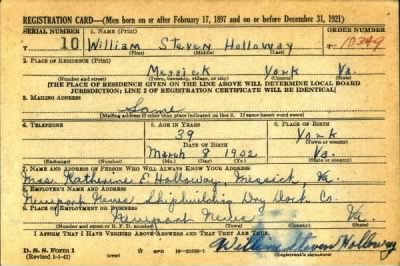 REGISTRATION CARD—(Men born on or after February 17, 1897 and on or before December 31, 1921)
SERIAL NUMBER 1. NAME (Print) ORDER NUMBER
T 10 William Steven Holloway 10349
(First) (Middle) (Last)
2. PLACE OF RESIDENCE (Print)
Messick York Va.
(Number and street) (Town, township, village, or city) (County) (State)
[THE PLACE OF RESIDENCE GIVEN ON THE LINE ABOVE WILL DETERMINE LOCAL BOARD
JURISDICTION; LINE 2 OF REGISTRATION CERTIFICATE WILL BE IDENTICAL]
3. MAILING ADDRESS
Same
[Mailing address if other than place indicated on line 2. If same insert word same]
4. TELEPHONE 5. AGE IN YEARS 6. PLACE OF BIRTH
39 York
DATE OF BIRTH (Town or county)
March 9 1902 Va.
(Exchange) (Number) (Mo.) (Day) (Yr.) (State or country)
7. NAME AND ADDRESS OF PERSON WHO WILL ALWAYS KNOW YOUR ADDRESS
Mrs. Katherine E. Holloway, Messick, Va.
8. EMPLOYER'S NAME AND ADDRESS
Newport News Shipbuilding Dry Dock Co.
9. PLACE OF EMPLOYMENT OR BUSINESS
Newport News Va.
(Number and street or R. F. D. number) (Town) (County) (State)
I AFFIRM THAT I HAVE VERIFIED ABOVE ANSWERS AND THAT THEY ARE TRUE.
D. S. S. Form 1
(Revised 1-5-42) (over) GPO William Steven Holloway
(Registrant's signature)